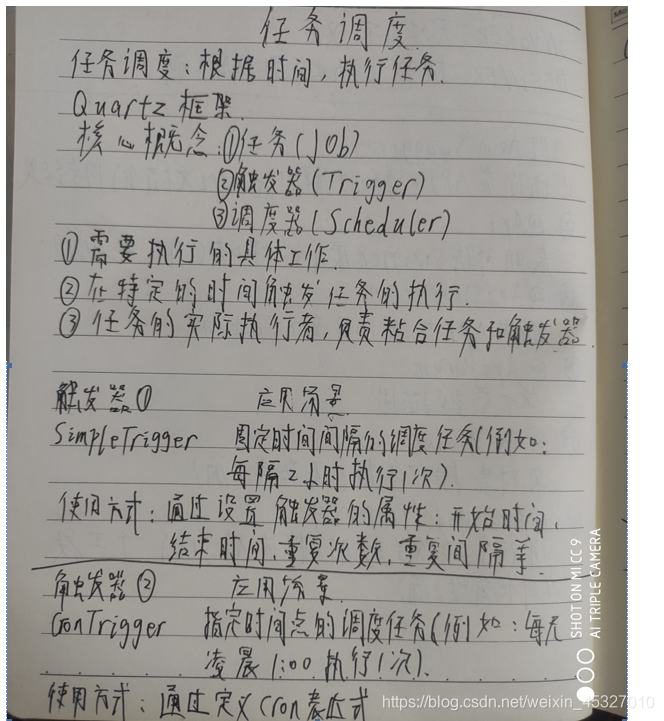 任务调度
任务调度：根据时间，执行任务.
Quartz 框架.
核心概念：①任务(Job)
②触发器(Trigger)
③调度器(Scheduler)
①需要执行的具体工作.
②在特定的时间触发任务的执行.
③任务的实际执行者，负责粘合任务和触发器.
触发器① 应用场景
SimpleTrigger 固定时间间隔的调度任务(例如：
每隔2小时执行1次).
使用方式：通过设置触发器的属性：开始时间，
结束时间，重复次数，重复间隔等.
触发器② 应用场景.
CronTrigger 指定时间点的调度任务(例如：每天
凌晨1:00执行1次).
使用方式：通过定义Cron表达式
SHOT ON MI CC 9
AI TRIPLE CAMERA
https://blog.csdn.net/weixin_45327010